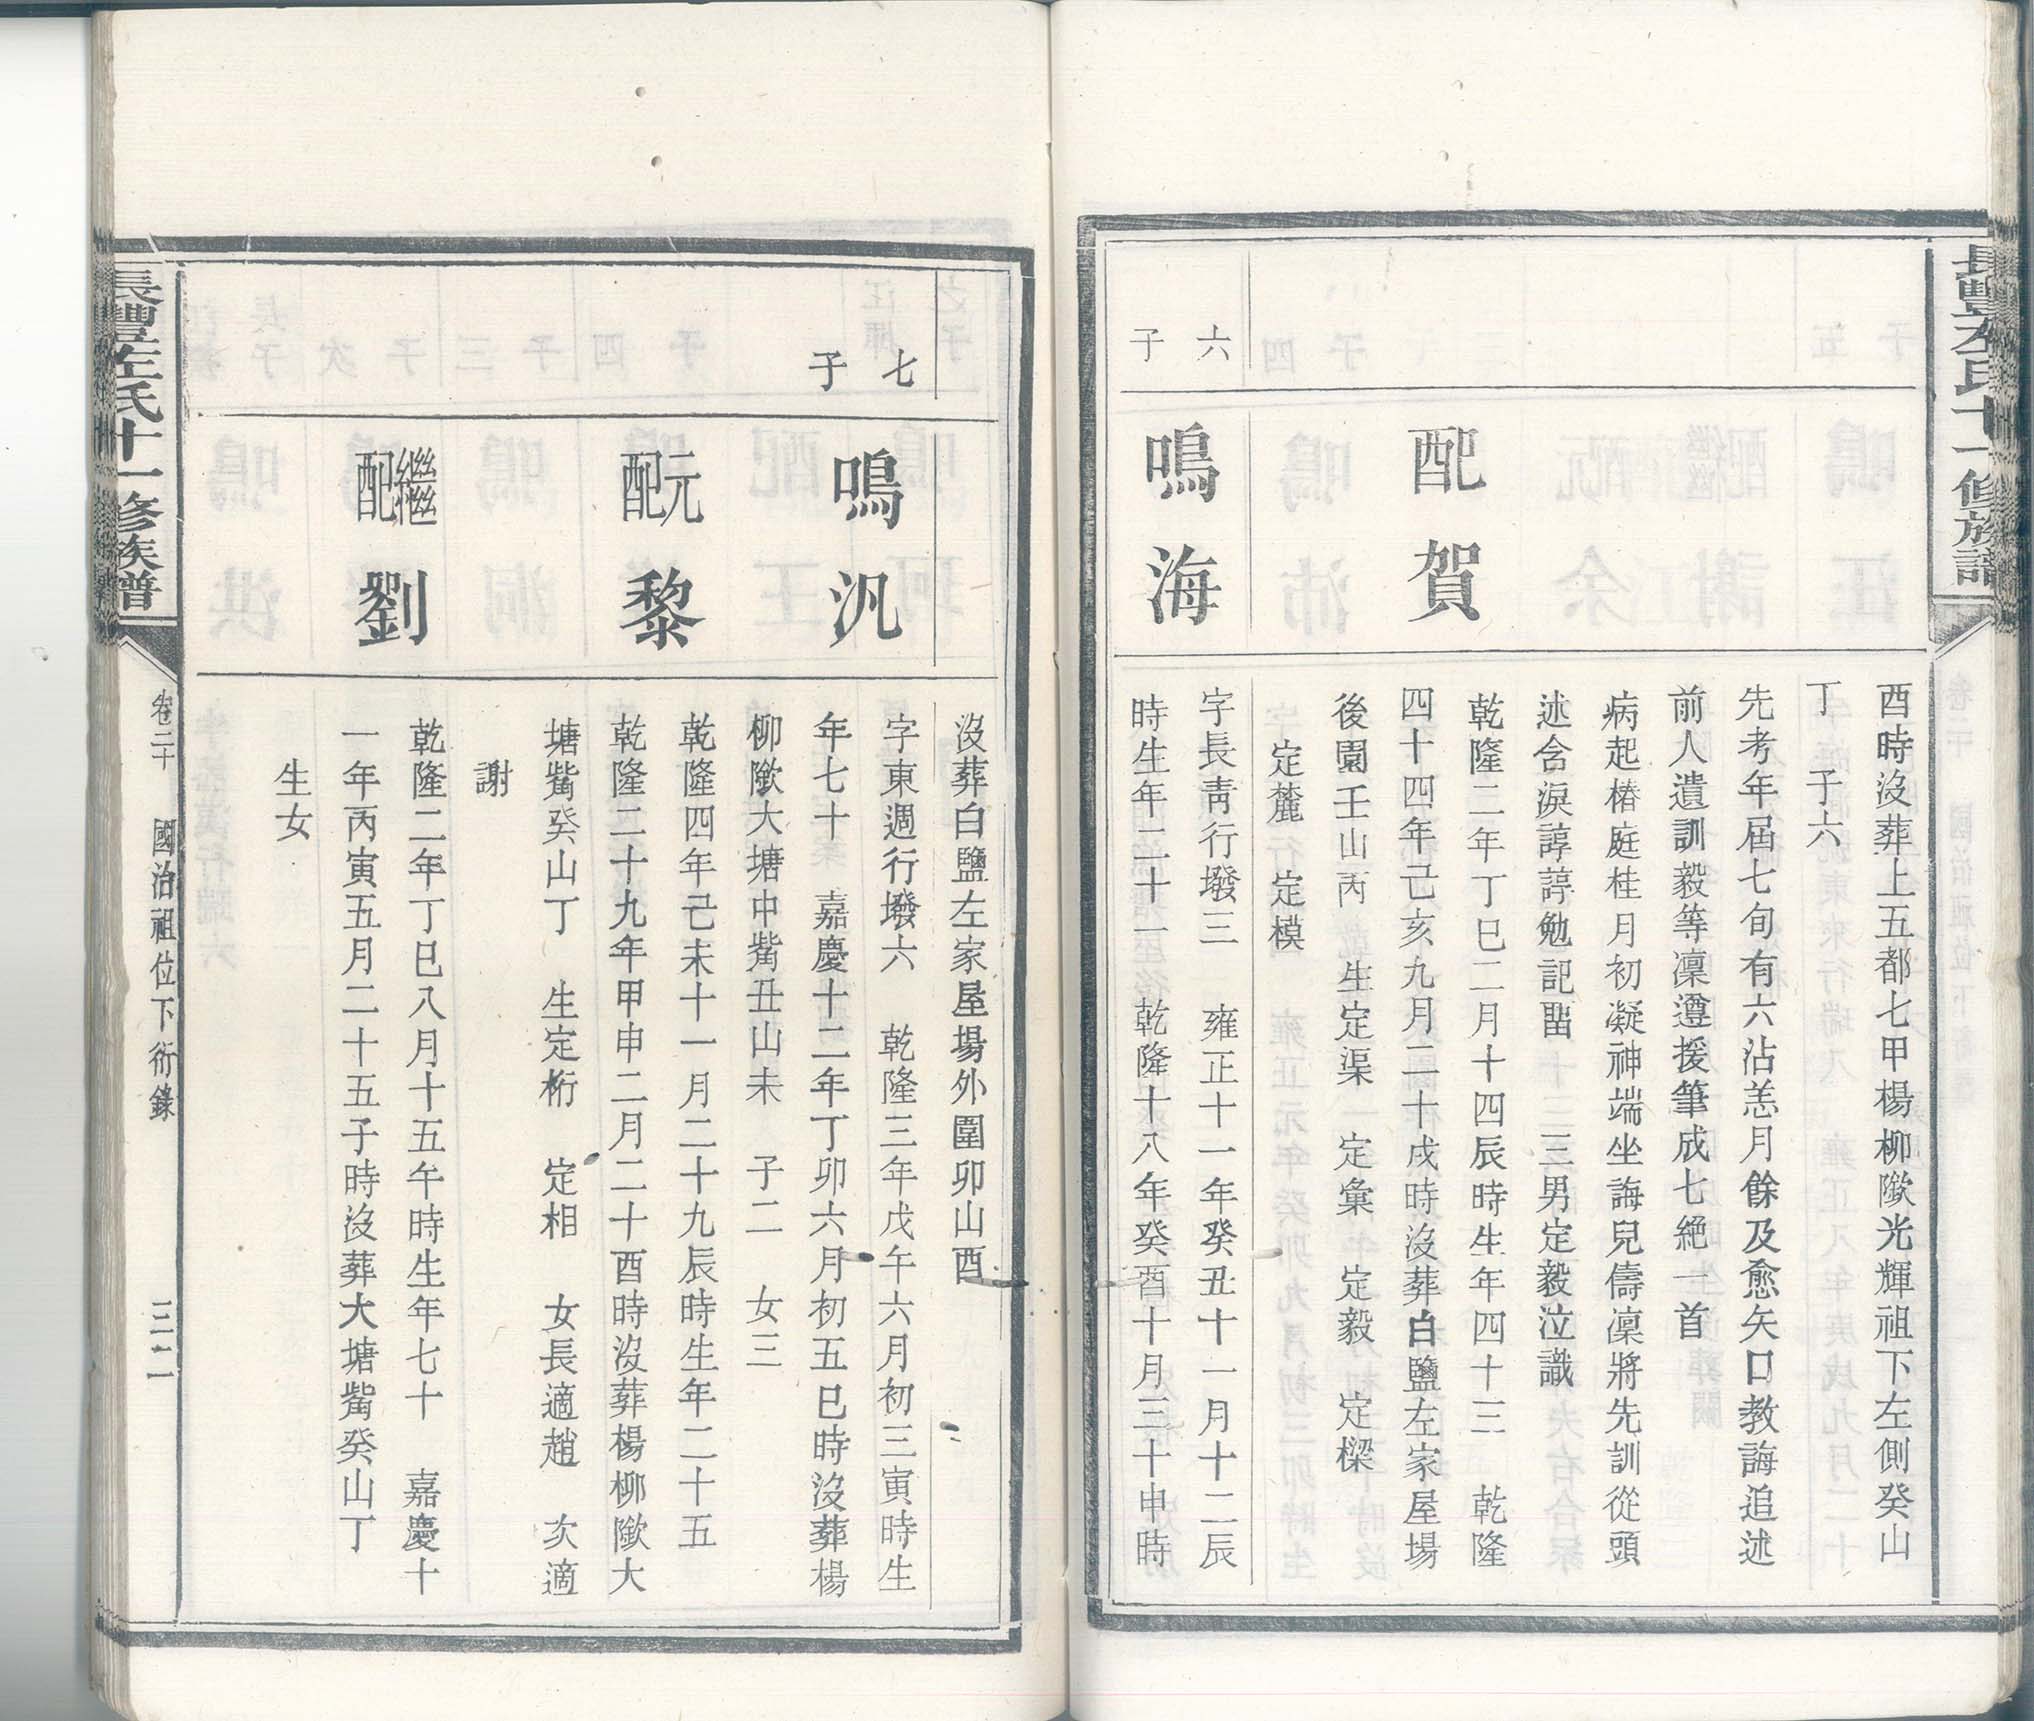 長豐左氏十一修族譜
酉時沒葬上五都七甲楊柳㙜光輝祖下左側癸山
丁　子六
先考年屆七旬有六沾恙月餘及愈矢口教誨追述
前人遺訓毅等凜遵援筆成七絕一首
病起椿庭桂月初凝神端坐誨兒儔凜將先訓從頭
述含淚諄諄勉記畱　三男定毅泣識
配賀
乾隆二年丁巳二月十四辰時生年四十三　乾隆
四十四年己亥九月二十戌時沒葬白鹽左家屋場
後園壬山丙　生定渠　定彙　定毅　定樑
定麓　定模
六子
鳴海
字長青行撥三　雍正十一年癸丑十一月十二辰
時生年二十一　乾隆十八年癸酉十月三十申時
沒葬白鹽左家屋場外圍卯山酉
七子
鳴汎
字東週行撥六　乾隆三年戊午六月初三寅時生
年七十　嘉慶十二年丁卯六月初五巳時沒葬楊
柳㙜大塘中觜丑山未　子二　女三
元配黎
乾隆四年己未十一月二十九辰時生年二十五
乾隆二十九年甲申二月二十酉時沒葬楊柳㙜大
塘觜癸山丁　生定桁　定相　女長適趙　次適
謝
繼配劉
乾隆二年丁巳八月十五午時生年七十　嘉慶十
一年丙寅五月二十五子時沒葬大塘觜癸山丁
生女
長豐左氏十一修族譜
卷二十　國治祖位下衍錄　三二